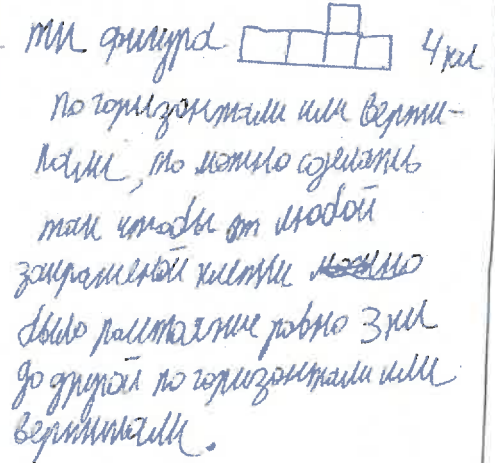 ти фигура 4 кл
по горизонтали или верти-
кали, то можно сделать
так чтобы от любой
закрашеной клетки можно
было расстояние ровно 3 кл
до другой по горизонтали или
вертикали.